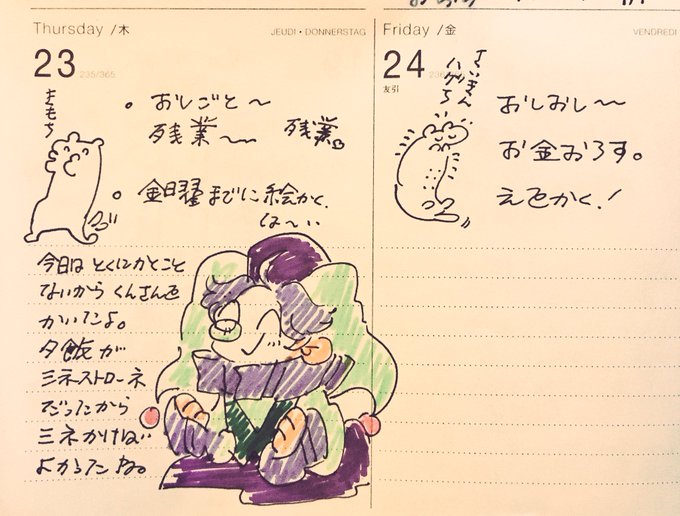 Thursday /木
JEUDI・DONNERSTAG
23
235/365
きもち
。おしごと〜
残業〜 残業。
。金曜までに絵かく、
は〜い
今日は とくにかくこと
ないから くんさんを
かいたよ。
夕飯が
ミネストローネ
だったから
ミネかけば
よかったね。
Friday /金
VENDREDI
24
友引
さいきん
おしおし〜
お金おろす。
えをかく!